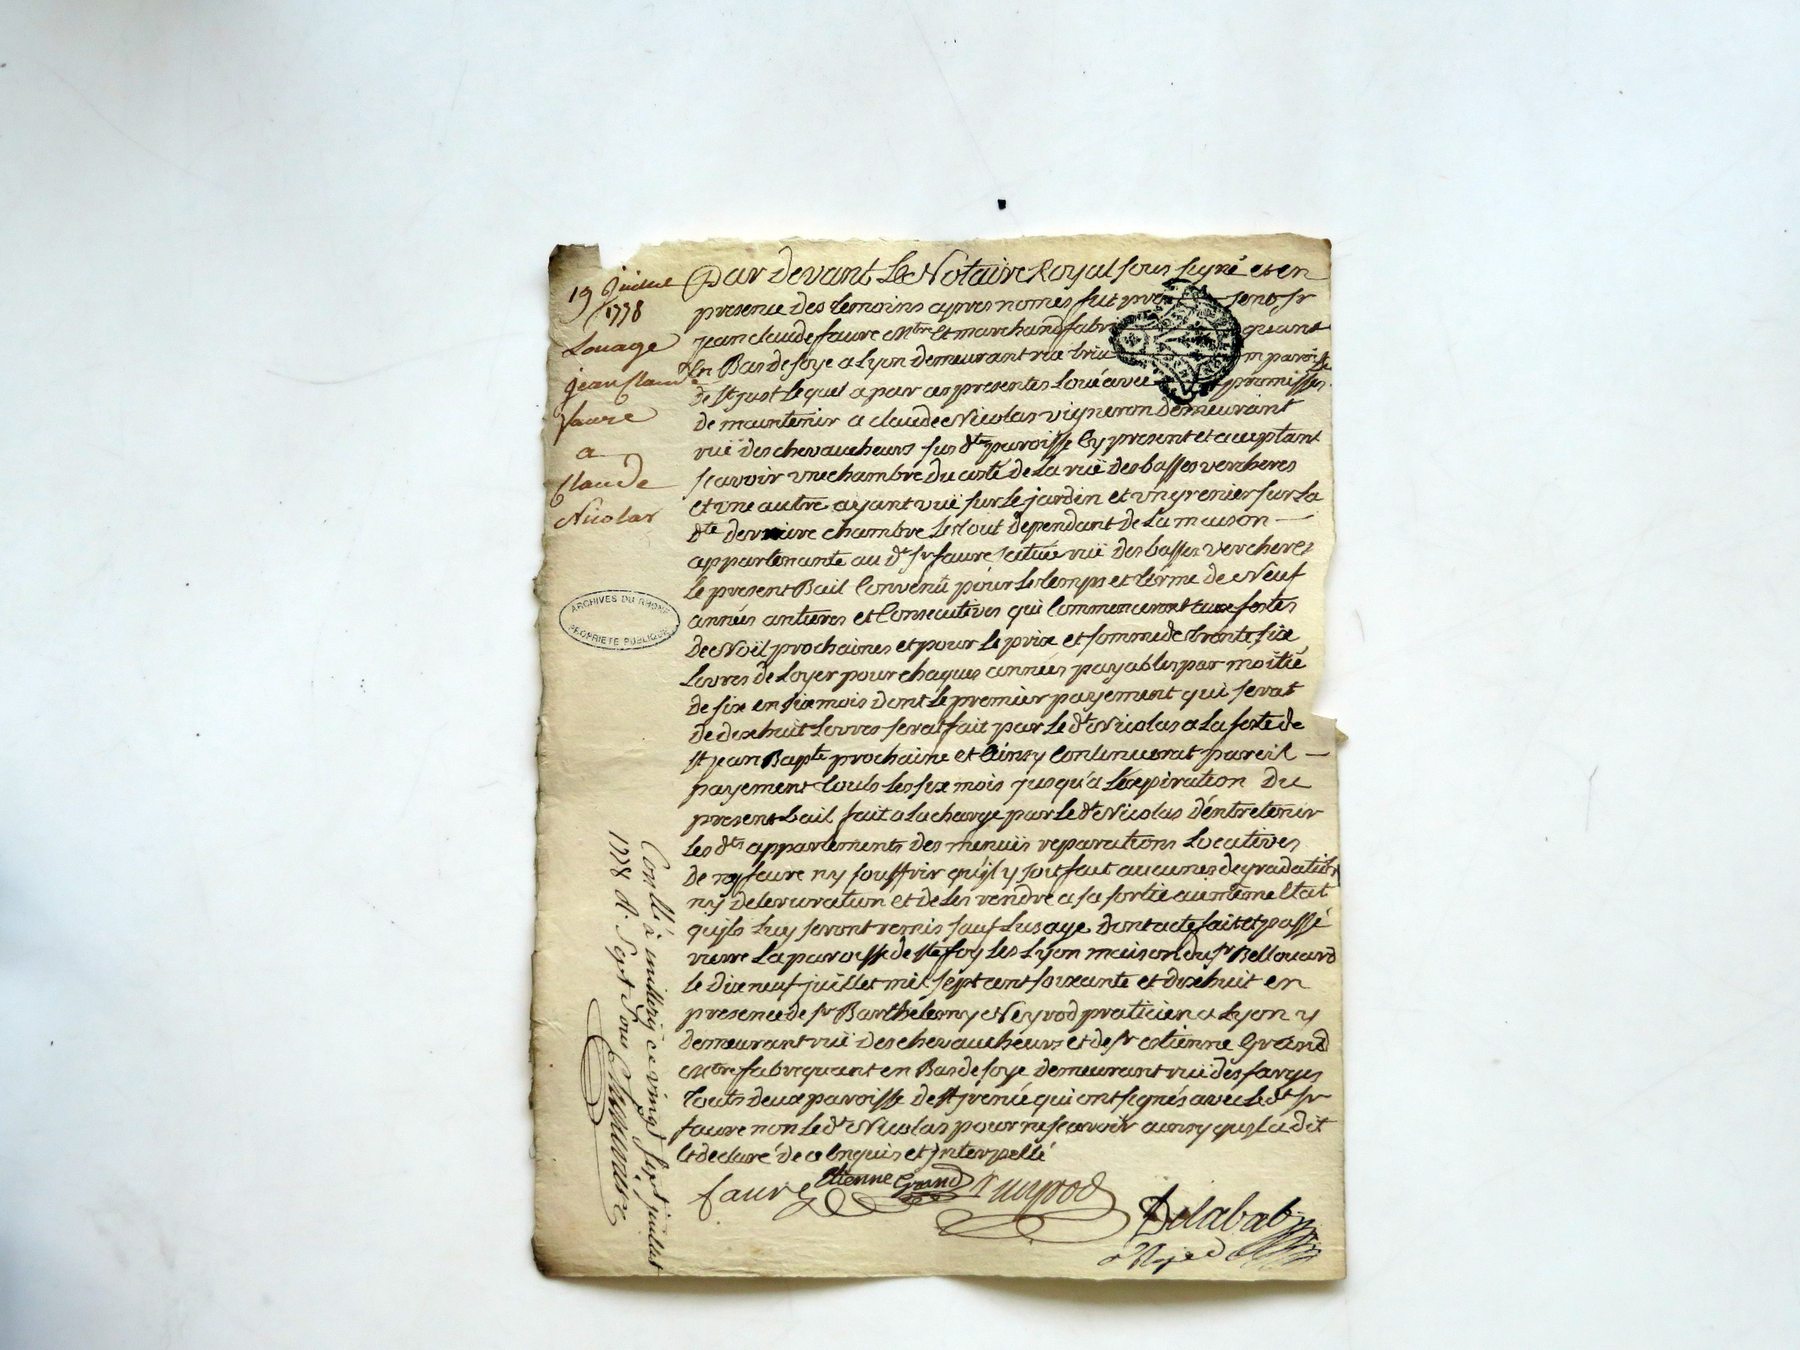 19 Juillet
1778
Louage
jean Claude
faure
a
Claude
Nicolas
Par devant Le Notaire Royal sous signé et en
presence des temoins apres només fut present sr
jean claude faure Mtre et marchand fabriquant
En Bas de soye a Lyon demeurant rue paroisse
de st just Lequel a par ces presentes Loué avec promisses
de maintenir a claude Nicolas vigneron demeurant
ruë des chevaucheurs sus dte paroisse Cy present et acceptant
scavoir une chambre du costé de La ruë des basses vercheres
et une autre ayant vuë sur Le jardin et un grenier sur La
dte derniere chambre Le tout dependant de La maison
appartenante au dt sr faure scituée ruë des basses vercheres
Le present Bail Convenû pour Le temps et terme de Neuf
années antieres et Consecutives qui Commenceront aux festes
de Noël prochaines et pour Le prix et somme de trente six
Livres de Loyer pour chaques années payables par moitié
de six en six mois dont Le premier payement qui serat
de dixhuit Livres serat fait par Le dt Nicolas a La feste de
st jean Bapte prochaine et Cinsy Continuerat pareil
payement touts Les six mois jusqu'a L'expiration du
present bail fait a La charge par Le dt Nicolas d'entretenir
Les dts appartements des menuës reparations Locatives
de ny faire ny souffrir qu'jl y soit fait aucunes degradations
ny deterioration et de Les rendre a sa sortie au meme Etat
qu'jls Luy seront remis sauf L'usage dont acte fait et passé
riere La paroisse de ste foy Les Lyon maison du sr Bellouard
le dixneuf juillet mil sept cent soixante et dixhuit en
presence de sr Barthélemy Neyrod praticien a Lyon y
demeurant ruë des chevaucheurs et de sr etienne Grand
Mtre fabriquant en Bas de soye demeurant ruë des farges
touts deux paroisse de st jrenée qui ont signés avec Le dt sr
faure non Le dt Nicolas pour ne scavoir ainsy qu'jl a dit
Et declaré de ce Enquis et jnterpellé
faure Etienne Grand Neyrod
Delabat
Nre Royal
Conllé à millery ce vingt sept juillet
1778 R. Sept sous
ARCHIVES DU RHONE
PROPRIETE PUBLIQUE